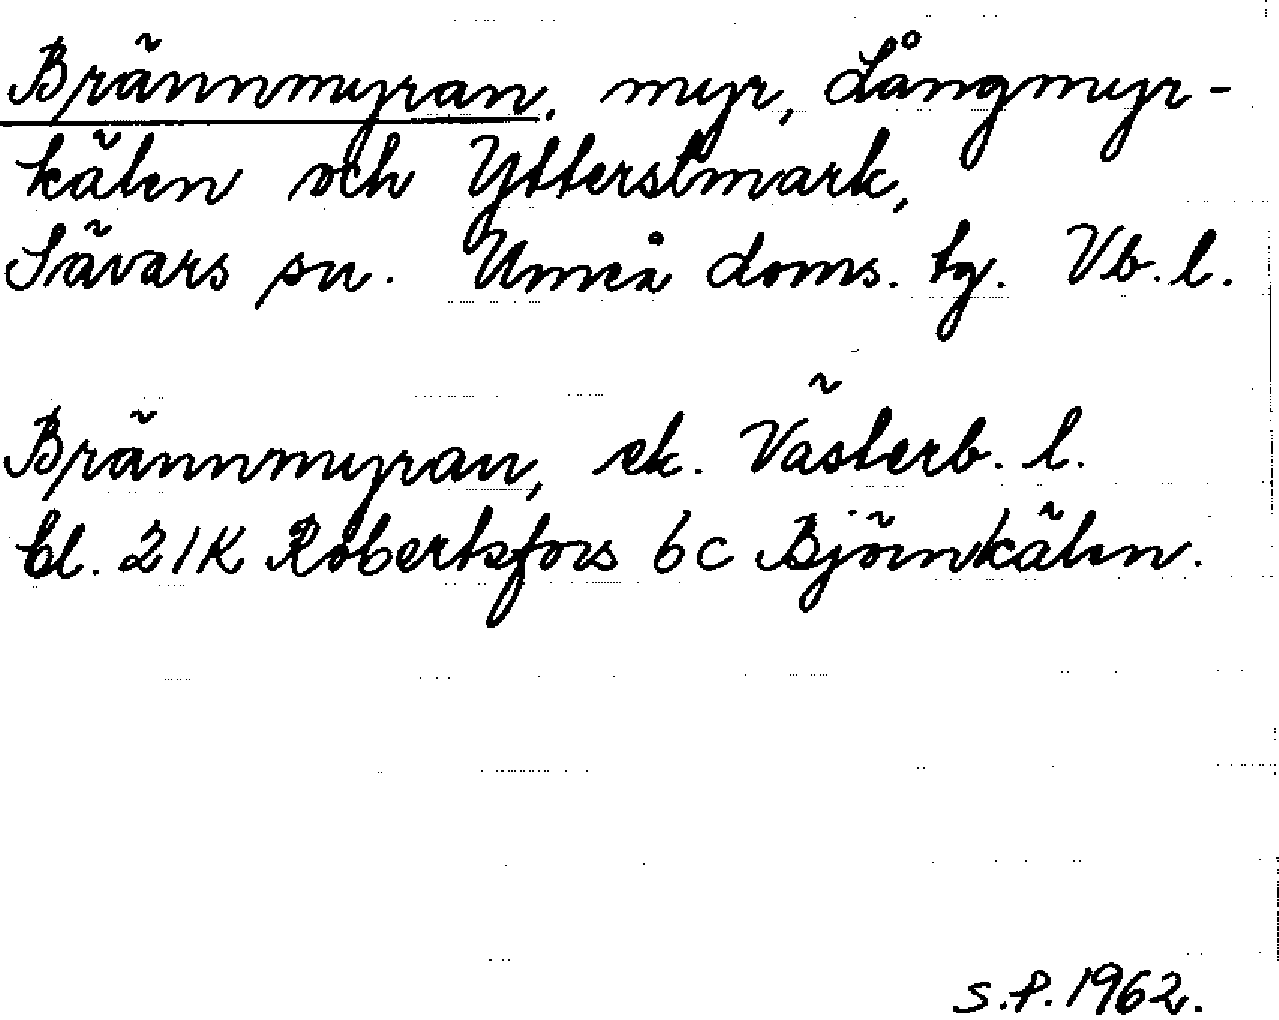 Brännmyran, myr, Långmyr-
kälen och Ytterstmark,
Sävars sn. Umeå doms. tg. Vb. l.
Brännmyran, ek. Västerb. l.
bl. 21K Robertsfors 6c Björnkälen.
S.P. 1962.